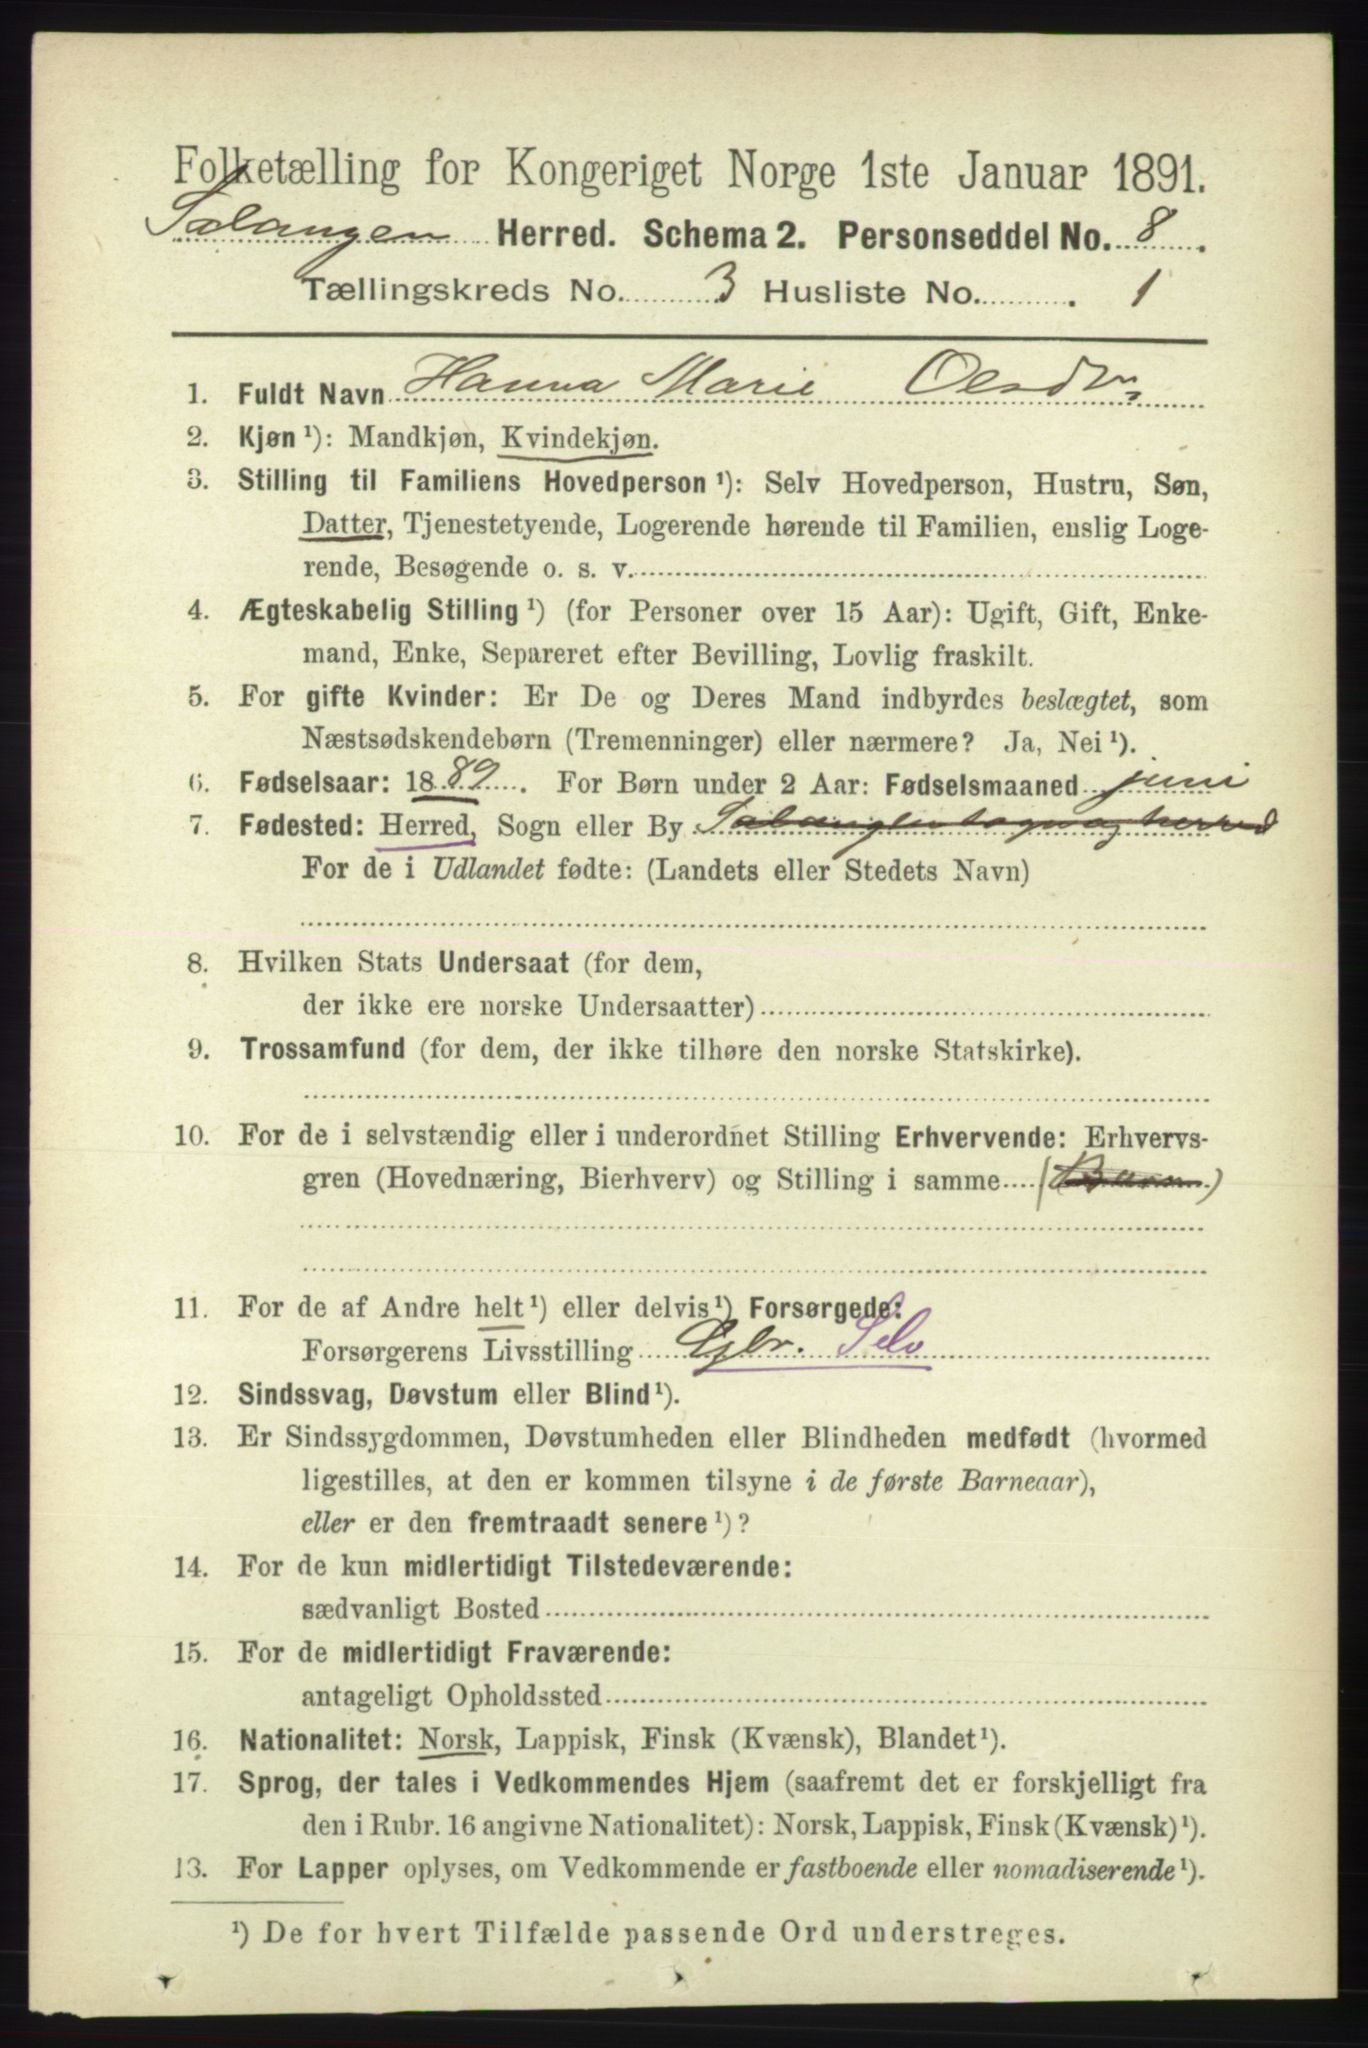 Folketælling for Kongeriget Norge 1ste Januar 1891.
Salangen Herred. Schema 2. Personseddel No. 8.
Tællingskreds No. 3 Husliste No. 1
1. Fuldt Navn Hanna Marie Olsdtr,
2. Kjøn ¹): Mandkjøn, Kvindekjøn.
3. Stilling til Familiens Hovedperson ¹): Selv Hovedperson, Hustru, Søn,
Datter, Tjenestetyende, Logerende hørende til Familien, enslig Loge-
rende, Besøgende o. s. v.
4. Ægteskabelig Stilling ¹) (for Personer over 15 Aar): Ugift, Gift, Enke-
mand, Enke, Separeret efter Bevilling, Lovlig fraskilt.
5. For gifte Kvinder: Er De og Deres Mand indbyrdes beslægtet, som
Næstsødskendebørn (Tremenninger) eller nærmere? Ja, Nei ¹).
6. Fødselsaar: 1889. For Børn under 2 Aar: Fødselsmaaned juni
7. Fødested: Herred, Sogn eller By Salangen sogn og herred
For de i Udlandet fødte: (Landets eller Stedets Navn)
8. Hvilken Stats Undersaat (for dem,
der ikke ere norske Undersaatter)
9. Trossamfund (for dem, der ikke tilhøre den norske Statskirke).
10. For de i selvstændig eller i underordnet Stilling Erhvervende: Erhvervs-
gren (Hovednæring, Bierhverv) og Stilling i samme (Barn)
11. For de af Andre helt ¹) eller delvis ¹) Forsørgede:
Forsørgerens Livsstilling Gbr. Selv
12. Sindssvag, Døvstum eller Blind ¹).
13. Er Sindssygdommen, Døvstumheden eller Blindheden medfødt (hvormed
ligestilles, at den er kommen tilsyne i de første Barneaar),
eller er den fremtraadt senere ¹)?
14. For de kun midlertidigt Tilstedeværende:
sædvanligt Bosted
15. For de midlertidigt Fraværende:
antageligt Opholdssted
16. Nationalitet: Norsk, Lappisk, Finsk (Kvænsk), Blandet ¹).
17. Sprog, der tales i Vedkommendes Hjem (saafremt det er forskjelligt fra
den i Rubr. 16 angivne Nationalitet): Norsk, Lappisk, Finsk (Kvænsk) ¹).
13. For Lapper oplyses, om Vedkommende er fastboende eller nomadiserende ¹).
¹) De for hvert Tilfælde passende Ord understreges.